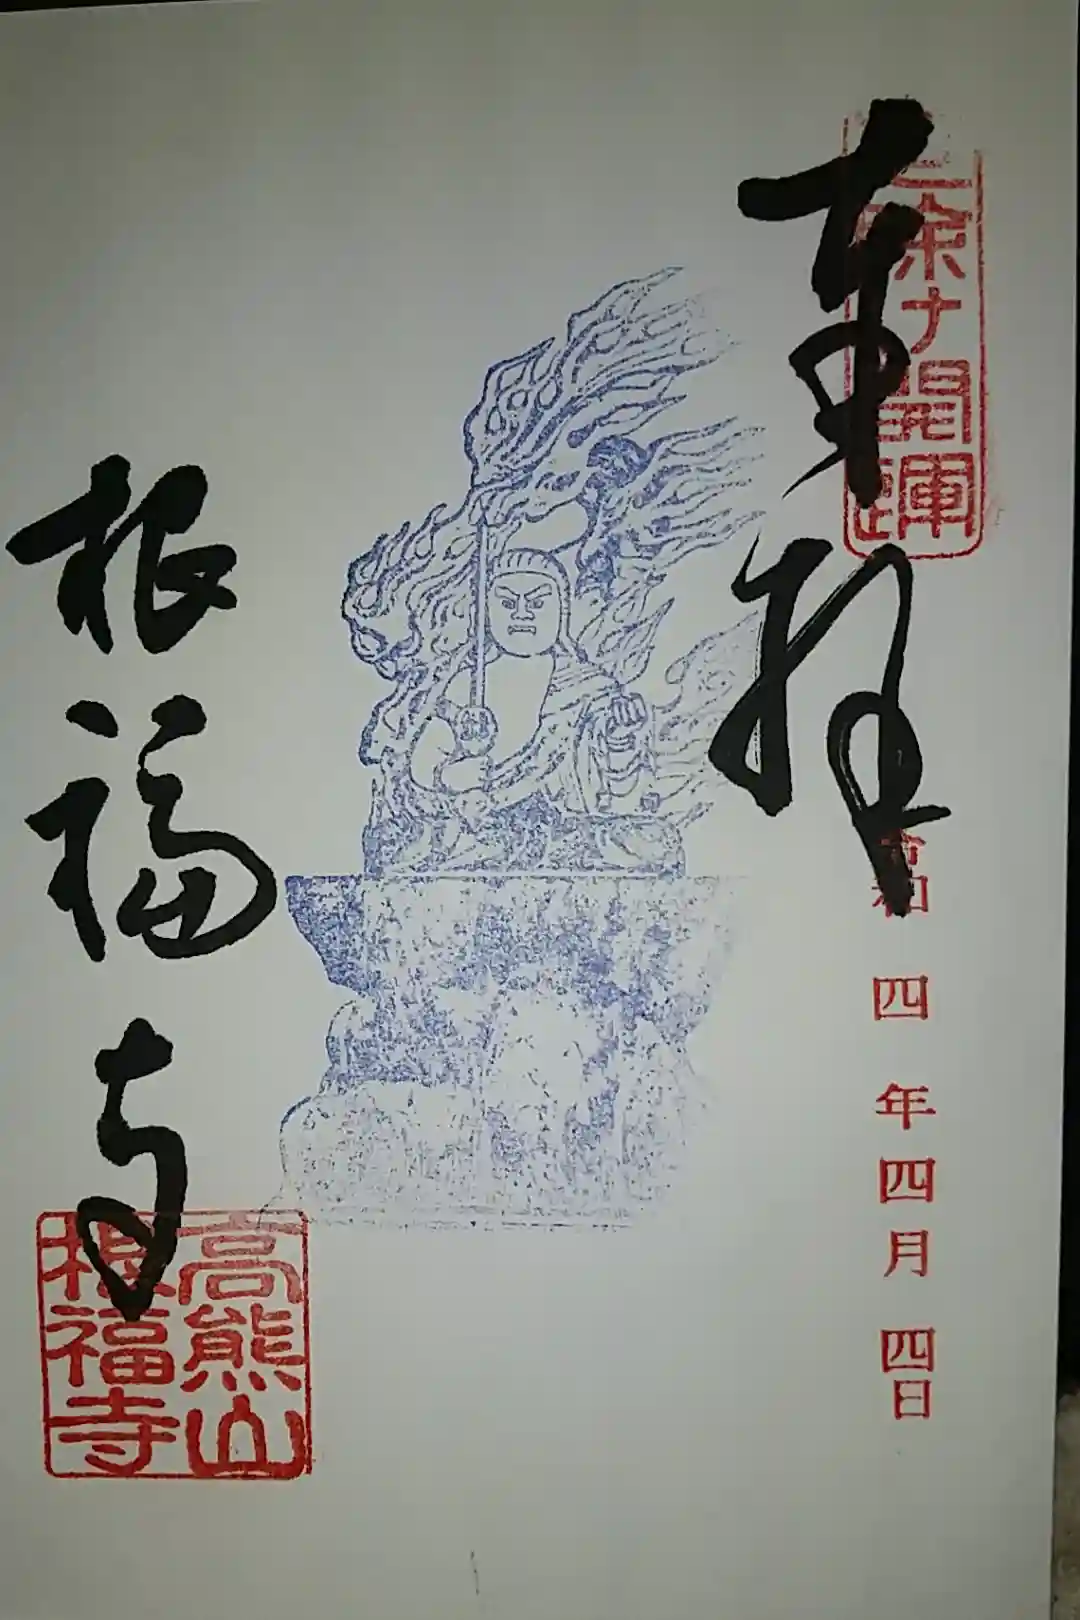 奉拝
令和四年四月四日
根福寺
高熊山
根福寺